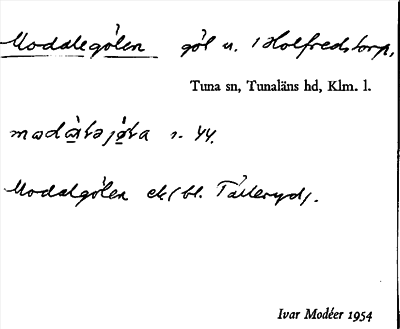 Modalegölen göl n. Holfredstorp,
Tuna sn, Tunaläns hd, Klm. l.
s. 44.
Modalgölen ek (bl. Tälleryd).
Ivar Modéer 1954